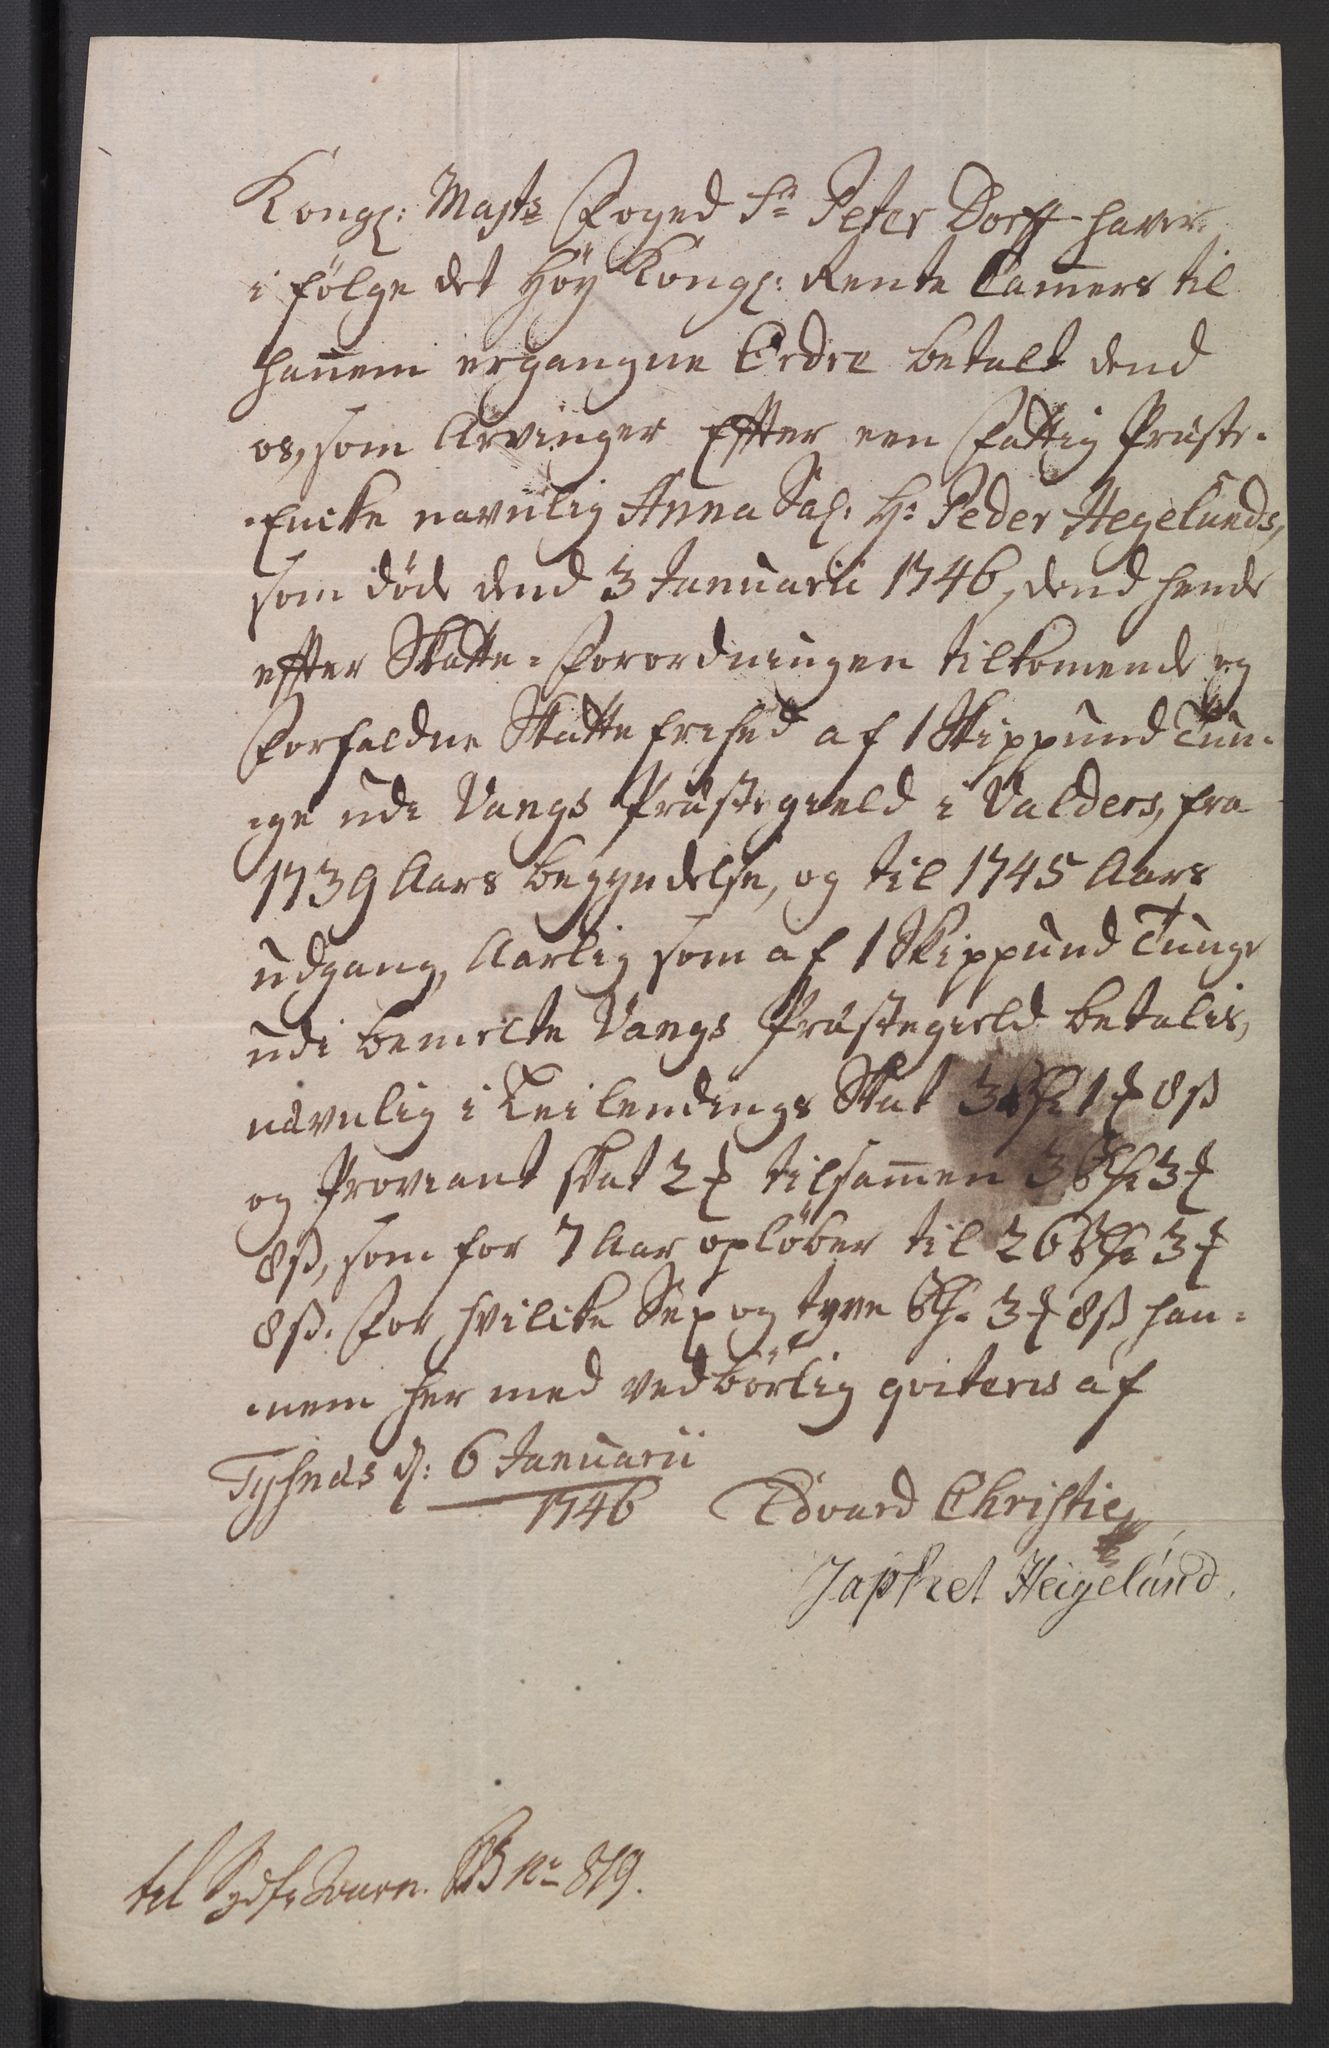 Kongl: Majts Foged Sr Peter Dorff haver
i følge det Höy Kongl: Rente Cam̄ers til
han̄em ergangne Ordre betalt dend
os, som Arvinger Effter een Fattig Præste-
Encke navnlig Anna Sal. Hr: Peder Hegelunds,
som döde dend 3 Januarii 1746, dend hende
effter Skatte-Forordningen tilkomende og
Forfaldne Skatte frihed af 1 Skippund Tun-
-ge udi Vangs Præstegield i Valders, fra
1739 Aars begyndelse, og til 1745 Aars
udgang, Aarlig som af 1 Skippund Tunge
udi bemelte Vangs Præstegield betalis,
navnlig i Leilendings Skat 3 Rdr 1 ₰ 8 ß
og Proviant skat 2 ₰ tilsam̄en 3 Rdr 3 ₰
8 ß, som for 7 Aar oplöber til 26 Rdr 3 ₰
8 ß. For hvilcke Sex og tyve Rdr 3 ₰ 8 ß han-
-nem her med vedbörlig qviteris af
Tysnæs d: 6 Januarii
1746 Edvard Christie
Japhet Heigelund.
til No 819.